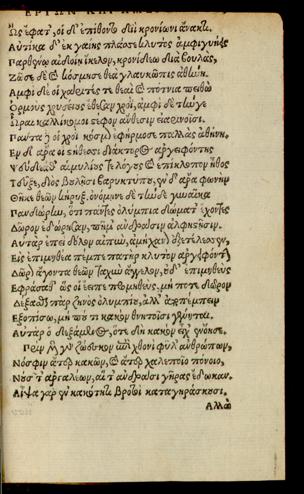 ΕΡΓΩΝ ΚΑΙ ΗΜΕ
Ὣς ἔφατ', οἱ δ' ἐπίθοντο διῒ κρονίωνι ἄνακτι.
Αὐτίκα δ' ἐκ γαίης πλάσσε κλυτὸς ἀμφιγυήεις
Παρθένῳ αἰδοίῃ ἴκελον, κρονίδεω διὰ βουλάς,
Ζῶσε δὲ καὶ κόσμησε θεὰ γλαυκῶπις ἀθήνη.
Ἀμφὶ δέ οἱ χάριτές τε θεαὶ καὶ πότνια πειθὼ
Ὅρμους χρυσείους ἔθεσαν χροΐ, ἀμφὶ δὲ τήνγε
Ὧραι καλλίκομοι στέφον ἄνθεσιν εἰαρινοῖσι.
Πάντα δέ οἱ χροῒ κόσμον ἐφήρμοσε παλλὰς ἀθήνη.
Ἐν δ' ἄρα οἱ στήθεσσι διάκτορος ἀργειφόντης
Ψεύδεά θ' αἱμυλίους τε λόγους καὶ ἐπίκλοπον ἦθος
Τεῦξε, διὸς βουλῇσι βαρυκτύπου, ἐν δ' ἄρα φωνὴν
Θῆκε θεῶν κῆρυξ, ὀνόμηνε δὲ τήνδε γυναῖκα
Πανδώρην, ὅτι πάντες ὀλύμπια δώματ' ἔχοντες
Δῶρον ἐδώρησαν, πῆμ' ἀνδράσιν ἀλφηστῇσιν.
Αὐτὰρ ἐπεὶ δόλον αἰπὺν, ἀμήχανον ἐξετέλεσσεν,
Εἰς ἐπιμηθέα πέμπε πατὴρ κλυτὸν ἀργειφόντην
Δῶρον ἄγοντα θεῶν ταχὺν ἄγγελον, οὐδ' ἐπιμηθεὺς
Ἐφράσαθ' ὥς οἱ ἔειπε προμηθεὺς, μή ποτε δῶρον
Δέξασθαι πὰρ ζηνὸς ὀλυμπίου, ἀλλ' ἀποπέμπειν
Ἐξοπίσω, μή πού τι κακὸν θνητοῖσι γένηται.
Αὐτὰρ ὁ δεξάμενος, ὅτε δὴ κακὸν εἶχ' ἐνόησε.
Πρὶν μὲν γὰρ ζώεσκον ἐπὶ χθονὶ φῦλ' ἀνθρώπων,
Νόσφιν ἄτερ κακῶν, καὶ ἄτερ χαλεποῖο πόνοιο,
Νούσων τ' ἀργαλέων, αἵ τ' ἀνδράσι γῆρας ἔδωκαν.
Αἶψα γὰρ ἐν κακότητι βροτοὶ καταγηράσκουσι.
Ἀλλὰ